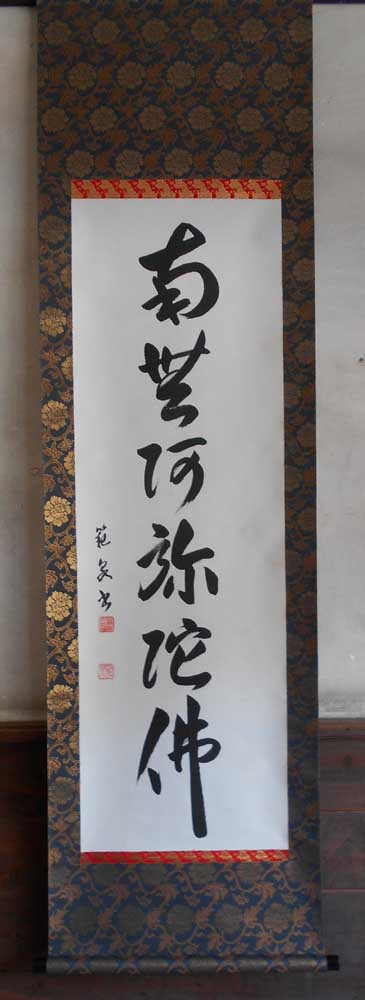 南無阿弥陀佛
範
書